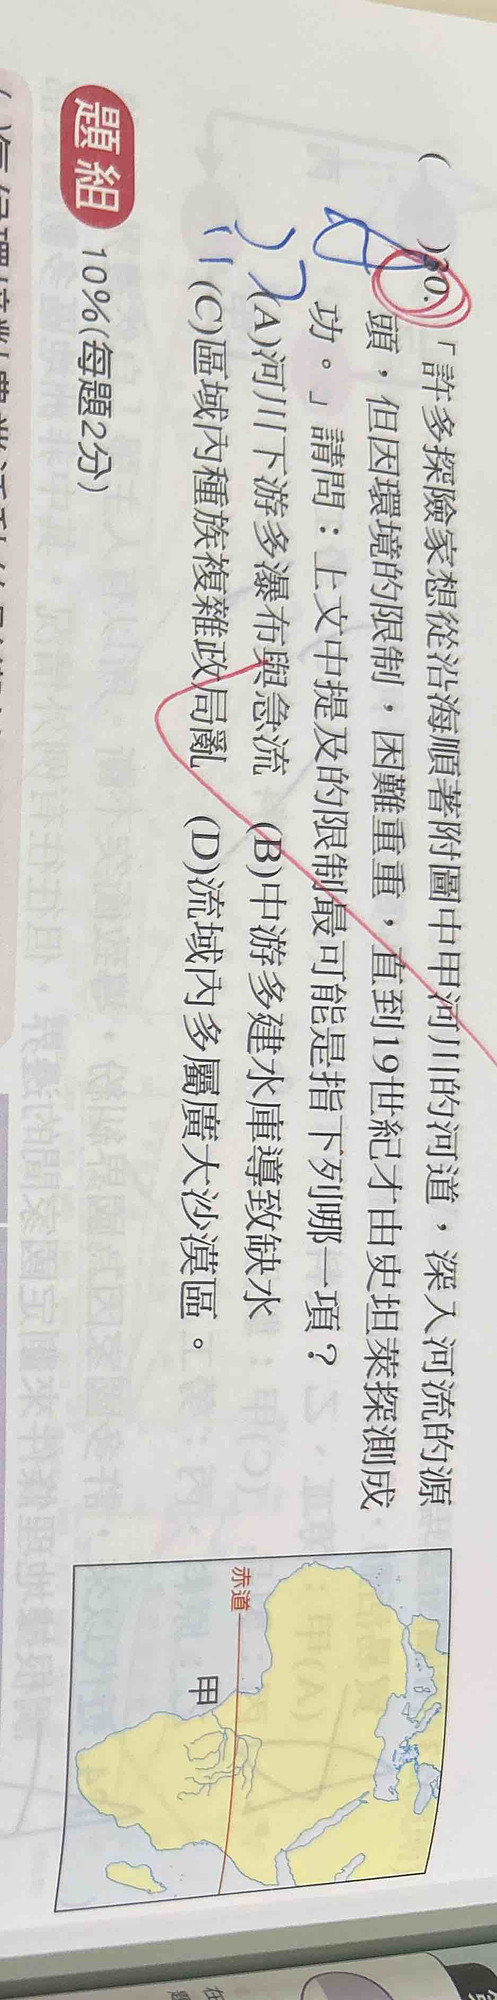 ( )30.「許多探險家想從沿海順著附圖中甲河川的河道，深入河流的源
頭，但因環境的限制，困難重重，直到19世紀才由史坦萊探測成
功。」請問：上文中提及的限制最可能是指下列哪一項？
(A)河川下游多瀑布與急流 (B)中游多建水庫導致缺水
(C)區域內種族複雜政局亂 (D)流域內多屬廣大沙漠區。
赤道
甲
題組 10%(每題2分)